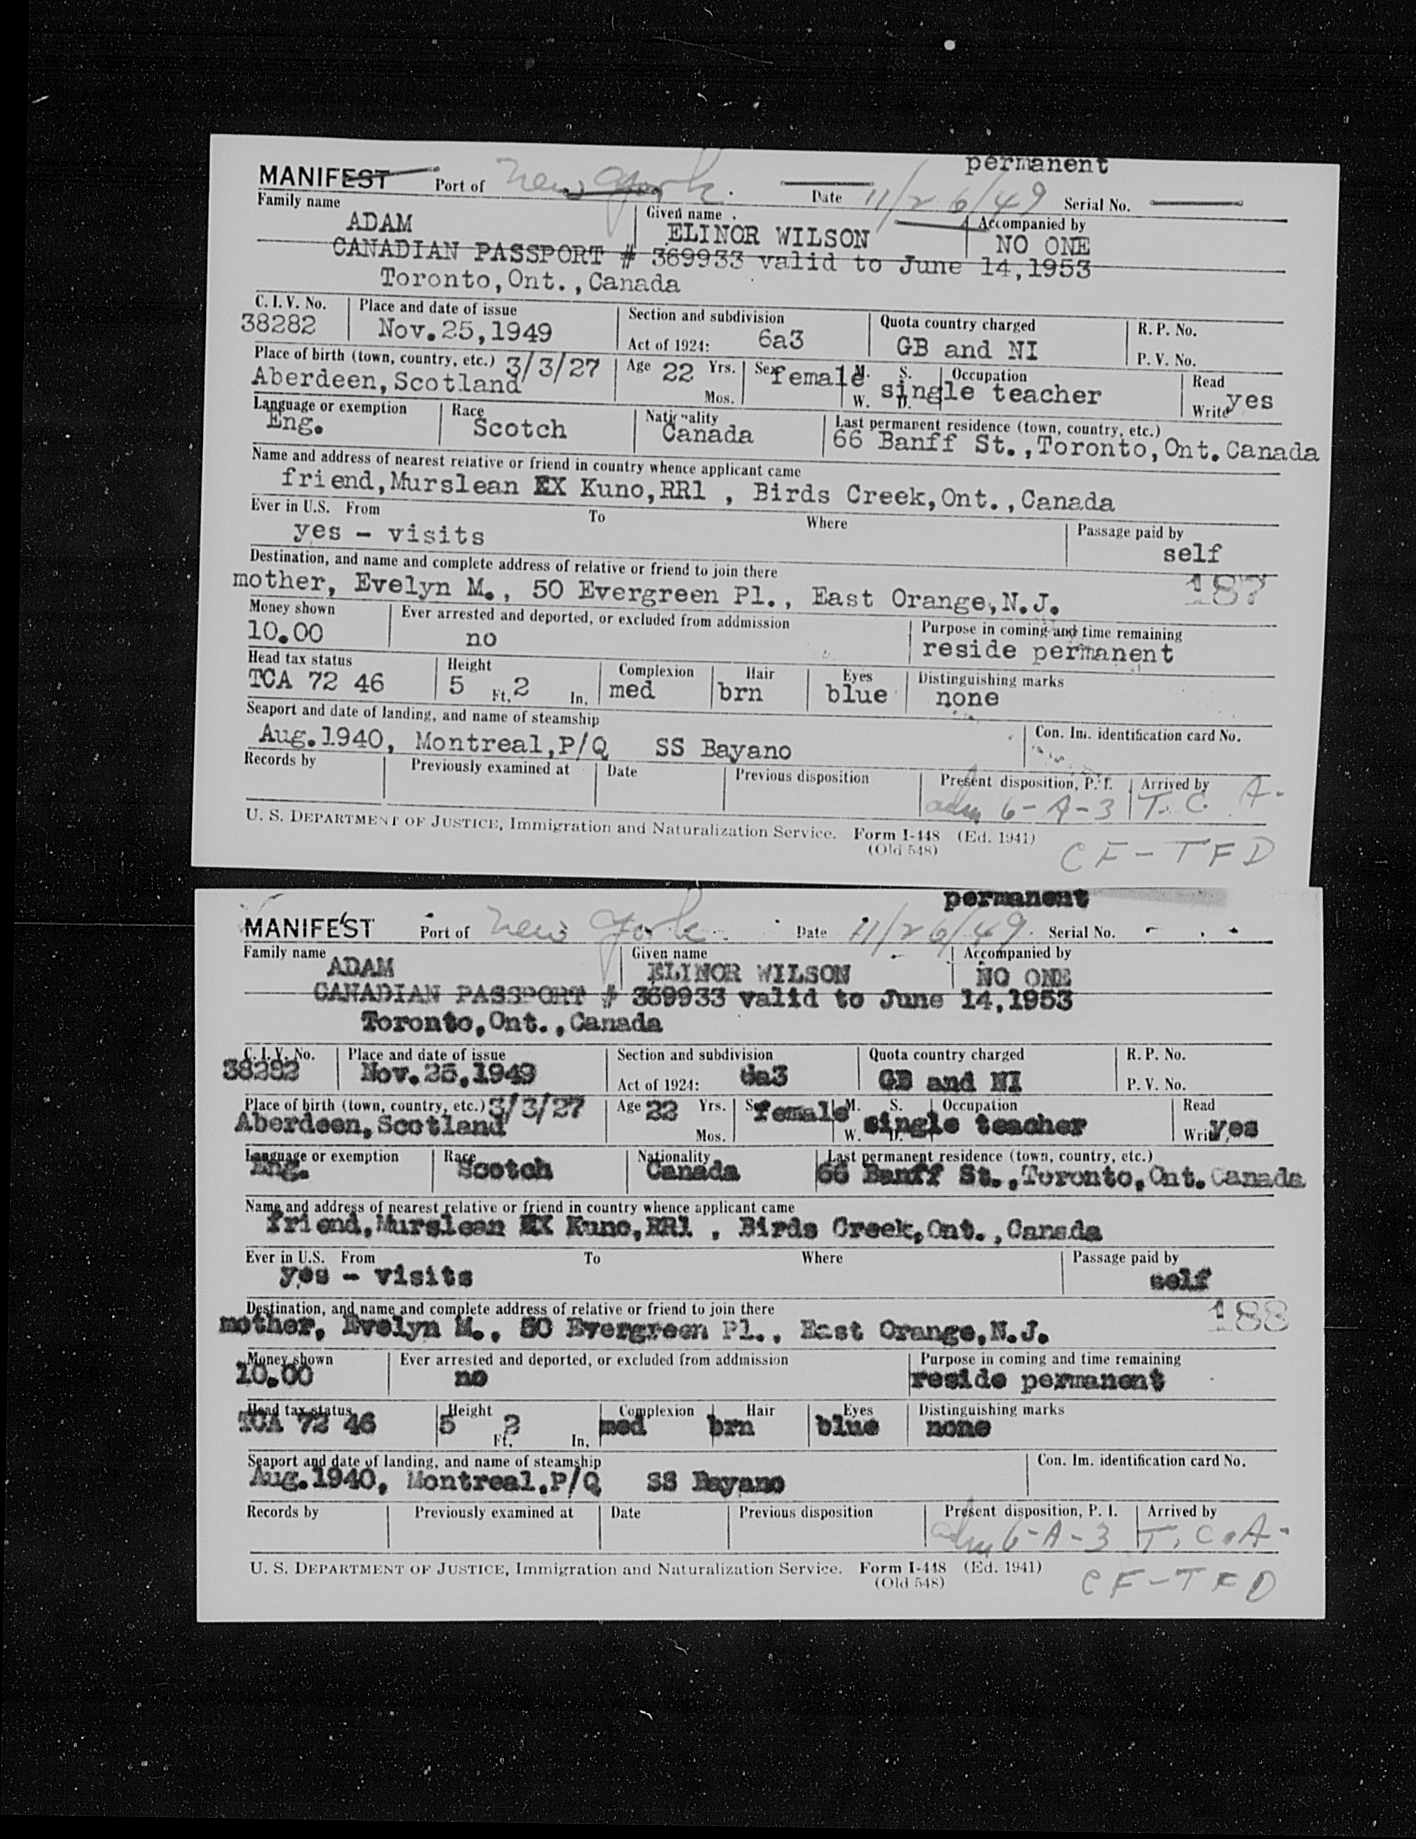 permanent
MANIFEST Port of New York. Date 11/26/49 Serial No.
Family name Given name Accompanied by
ADAM ELINOR WILSON NO ONE
CANADIAN PASSPORT # 369933 valid to June 14,1953
Toronto,Ont.,Canada
C. I. V. No. Place and date of issue Section and subdivision Quota country charged R. P. No.
38282 Nov.25,1949 Act of 1924: 6a3 GB and NI P. V. No.
Place of birth (town, country, etc.) 3/3/27 Age 22 Yrs. Sex female M. S. Occupation Read
Aberdeen,Scotland Mos. W. D. single teacher Write yes
Language or exemption Race Nationality Last permanent residence (town, country, etc.)
Eng. Scotch Canada 66 Banff St.,Toronto,Ont.Canada
Name and address of nearest relative or friend in country whence applicant came
friend,Murslean EX Kuno,RR1 , Birds Creek,Ont.,Canada
Ever in U.S. From To Where Passage paid by
yes - visits self
Destination, and name and complete address of relative or friend to join there
mother, Evelyn M., 50 Evergreen Pl., East Orange,N.J. 187
Money shown Ever arrested and deported, or excluded from addmission Purpose in coming and time remaining
10.00 no reside permanent
Head tax status Height Complexion Hair Eyes Distinguishing marks
TCA 72 46 5 Ft. 2 In. med brn blue none
Seaport and date of landing, and name of steamship Con. Im. identification card No.
Aug.1940, Montreal,P/Q SS Bayano
Records by Previously examined at Date Previous disposition Present disposition, P. I. Arrived by
adm 6-A-3 T. C. A.
U. S. DEPARTMENT OF JUSTICE, Immigration and Naturalization Service. Form I-448 (Ed. 1941)
(Old 548) CF-TFD
permanent
MANIFEST Port of New York. Date 11/26/49. Serial No.
Family name Given name Accompanied by
ADAM ELINOR WILSON NO ONE
CANADIAN PASSPORT # 369933 valid to June 14,1953
Toronto,Ont.,Canada
C. I. V. No. Place and date of issue Section and subdivision Quota country charged R. P. No.
38282 Nov.25,1949 Act of 1924: 6a3 GB and NI P. V. No.
Place of birth (town, country, etc.) 3/3/27 Age 22 Yrs. Sex female M. S. Occupation Read
Aberdeen,Scotland Mos. W. D. single teacher Write yes
Language or exemption Race Nationality Last permanent residence (town, country, etc.)
Eng. Scotch Canada 66 Banff St.,Toronto,Ont.Canada
Name and address of nearest relative or friend in country whence applicant came
friend,Murslean EX Kuno,RR1 , Birds Creek,Ont.,Canada
Ever in U.S. From To Where Passage paid by
yes - visits self
Destination, and name and complete address of relative or friend to join there
mother, Evelyn M., 50 Evergreen Pl., East Orange,N.J. 188
Money shown Ever arrested and deported, or excluded from addmission Purpose in coming and time remaining
10.00 no reside permanent
Head tax status Height Complexion Hair Eyes Distinguishing marks
TCA 72 46 5 Ft. 2 In. med brn blue none
Seaport and date of landing, and name of steamship Con. Im. identification card No.
Aug.1940, Montreal,P/Q SS Bayano
Records by Previously examined at Date Previous disposition Present disposition, P. I. Arrived by
adm 6-A-3 T. C. A.
U. S. DEPARTMENT OF JUSTICE, Immigration and Naturalization Service. Form I-448 (Ed. 1941)
(Old 548) CF-TFD